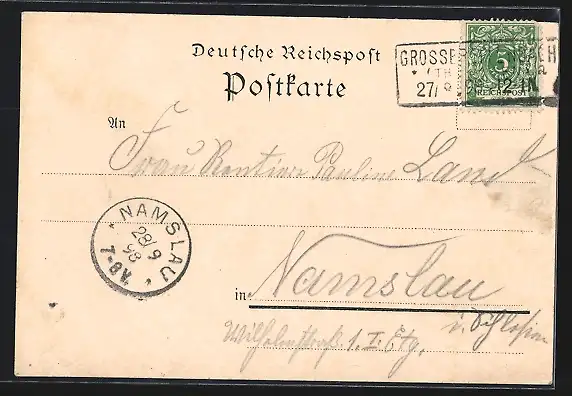 Deutsche Reichspost
Postkarte
GROSSE
27/9
12-1N
5
REICHSPOST
An
Frau Rentiere Pauline Land
NAMSLAU
28/9
98
7-8V.
in Namslau
i. Schlesien
Wilhelmstraß. 1. I. Etg.